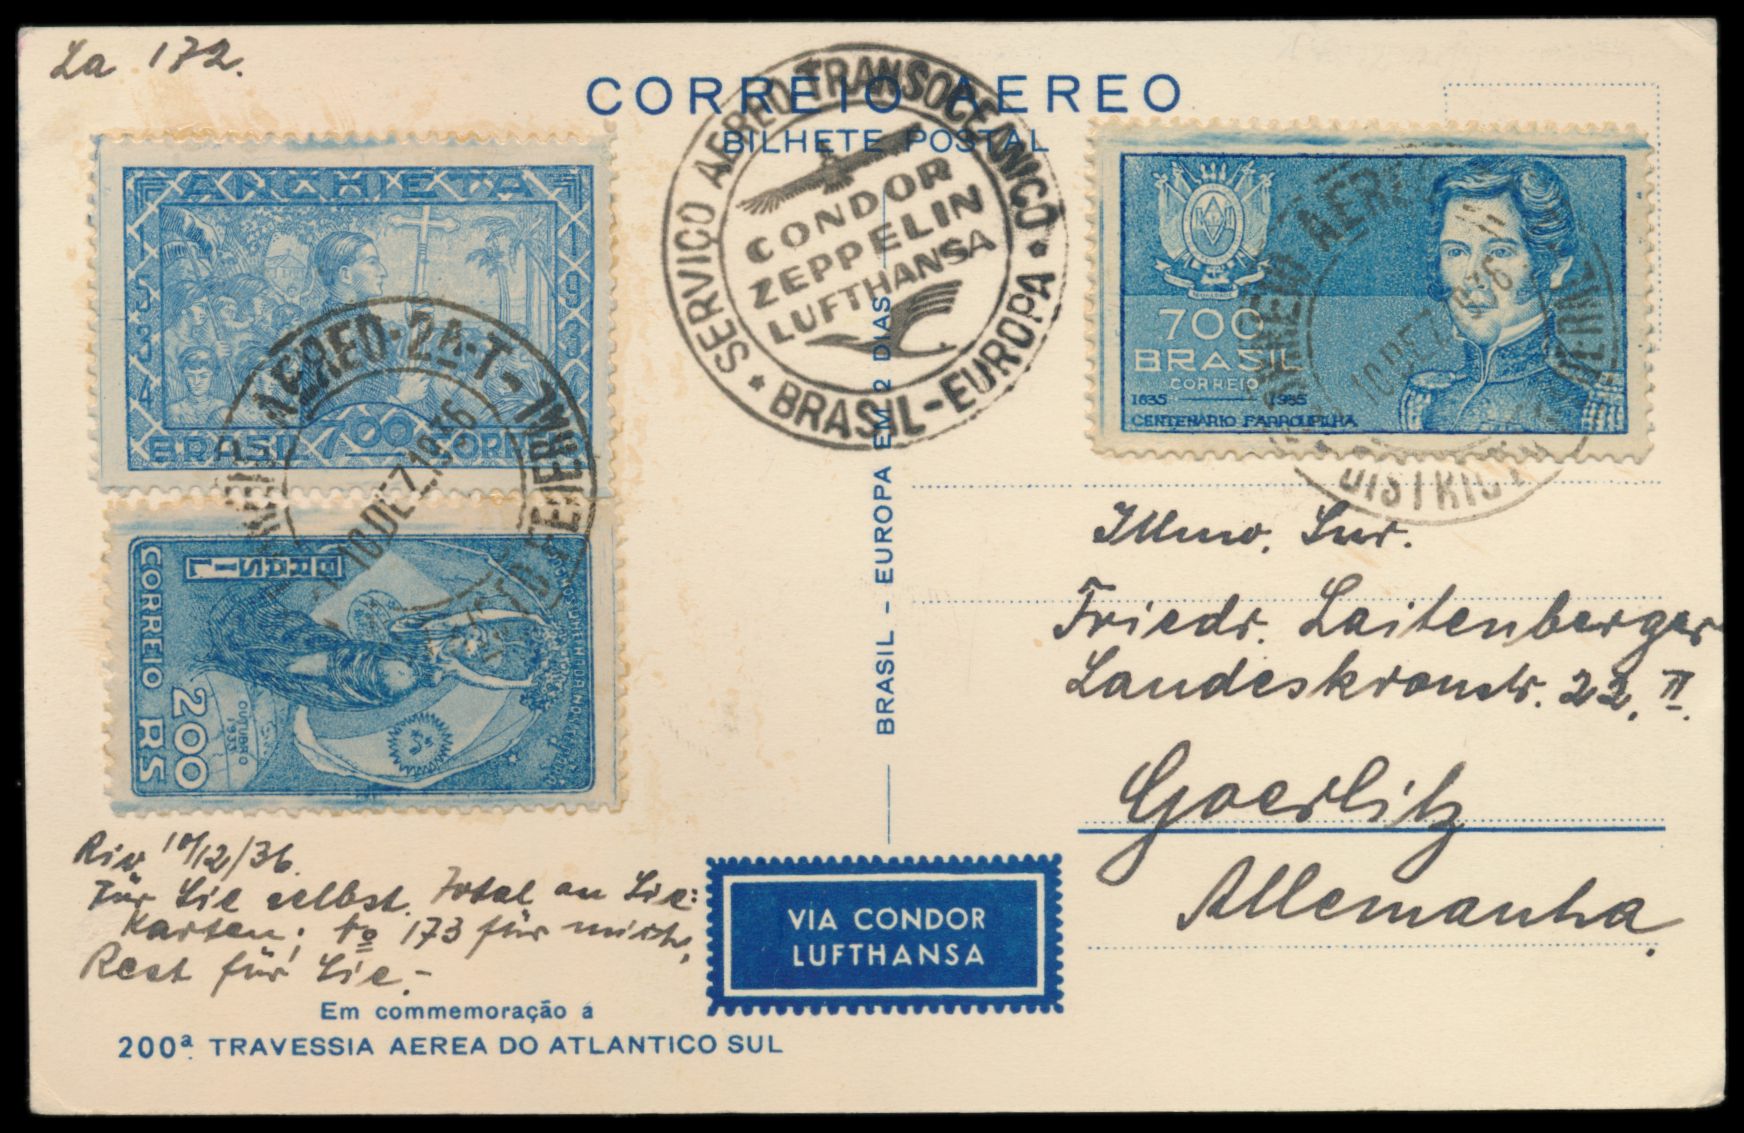 La 172.
CORREIO AEREO
BILHETE POSTAL
SERVIÇO AEREO TRANSOCEANICO
CONDOR
ZEPPELIN
LUFTHANSA
BRASIL-EUROPA
ANCHIETA
1534
1934
BRASIL 700 CORREIO
AEREO-2A-T-
10.DEZ.1936
BRASIL
CORREIO
200 RS
OUTUBRO
1933
700
BRASIL
CORREIO
1835 1935
CENTENARIO FARROUPILHA
AEREO
10 DEZ 1936
DISTRICT
BRASIL - EUROPA EM 2 DIAS
Illmo. Snr.
Friedr. Laitenberger
Landeskronstr. 22, II.
Goerlitz
Allemanha.
Rio, 10/12/36.
Für Sie selbst. Total an Sie:
Karten: 173 für mich,
Rest für Sie.-
VIA CONDOR
LUFTHANSA
Em commemoração á
200ª TRAVESSIA AEREA DO ATLANTICO SUL